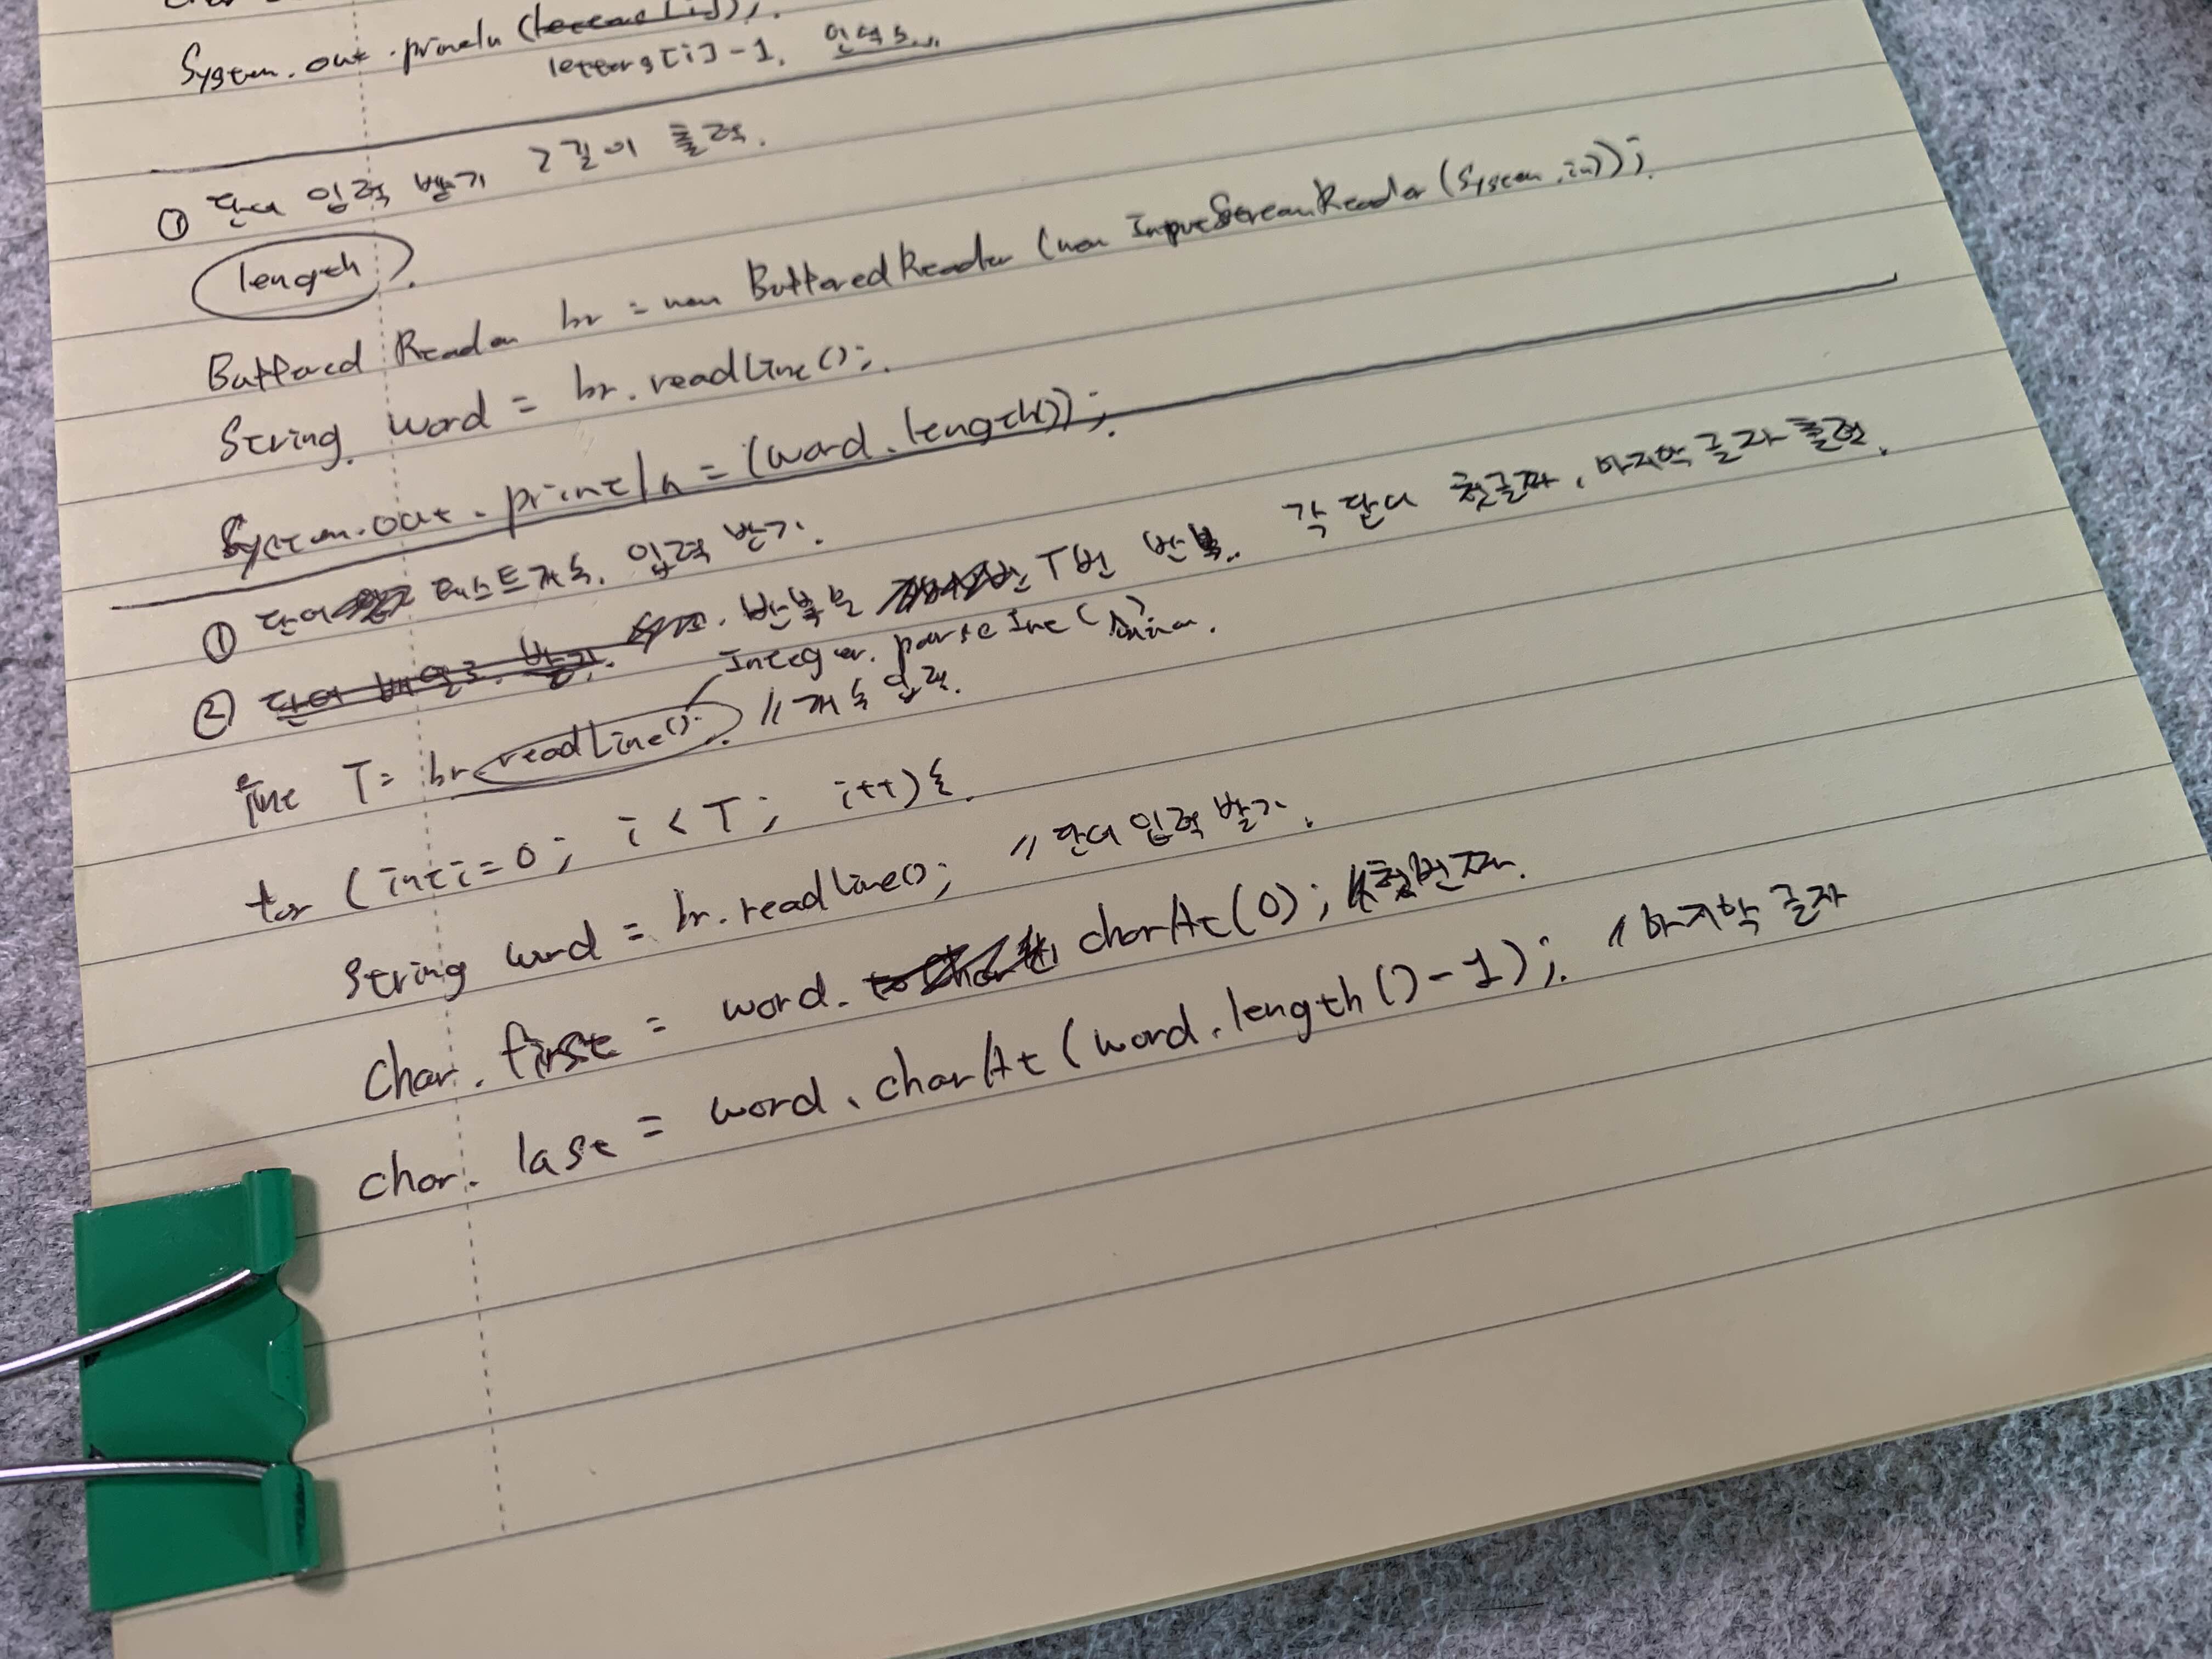 System.out.println (letters[i]);
letters[i]-1.
① 단어 입력 받기 2 길이 출력.
length
Buffered Reader br = new BufferedReader (new InputStreamReader (System.in));
String. word = br.readLine();
System.out.println = (word.length());
① 단어 테스트개수. 입력 받기.
② 단어 배열로. 받기. 반복문 T번 반복. 각 단어 첫글자, 마지막 글자 출력.
Integer.parseInt( )
int T = br.readLine(). // 개수 입력.
for (int i=0; i<T; i++){
String word = br.readLine(); // 단어 입력 받기.
Char. first = word. charAt(0); // 첫번째.
char. last = word.charAt(word.length()-1); // 마지막 글자